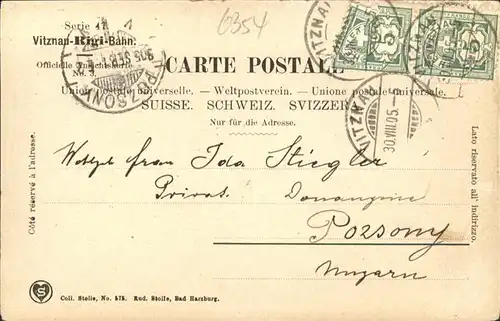 Serie 17.
6354
Vitznau-Rigi-Bahn.
Officielle Ansichtskarte
No. 3.
POZSONY
905
CARTE POSTALE
Union postale universelle. — Weltpostverein. — Unione postale universale.
SUISSE. SCHWEIZ. SVIZZERA.
Nur für die Adresse.
VITZNAU
30.VIII.05.-5
FRANCO
5
VITZNAU
5
Côté réservé à l'adresse.
Lato riservato all' indirizzo.
Frau Ida Stiegler
Privat.
Pozsony
Ungarn
Coll. Stolle, No. 575. Rud. Stolle, Bad Harzburg.